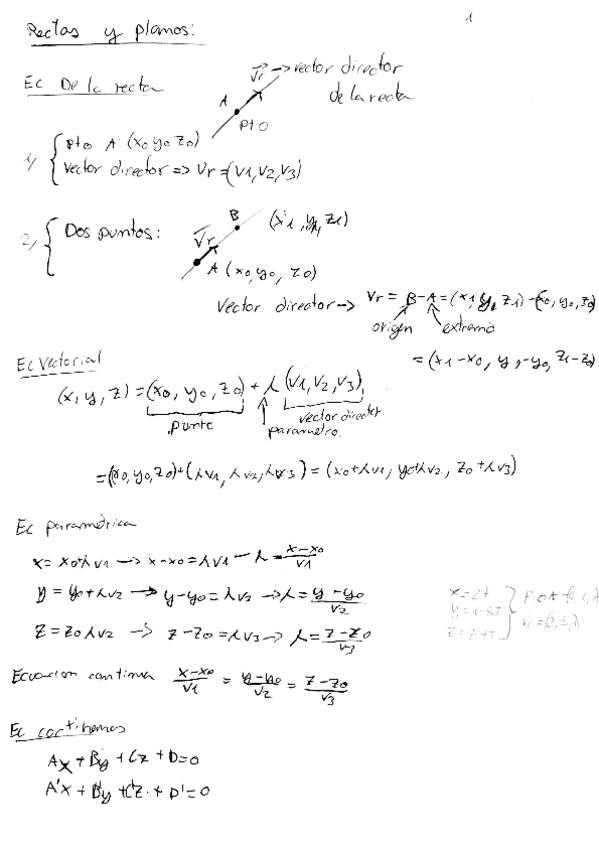 1
Rectas y planos:
Ec De la recta
Vr → vector director
de la recta
A
pto
1) { pto A (x0 y0 z0)
vector director => Vr = (V1, V2, V3)
2) { Dos puntos:
B (x1, y1, z1)
Vr
A (x0, y0, z0)
Vector director → Vr = B - A = (x1, y1, z1) - (x0, y0, z0)
origen extremo
= (x1 - x0, y1 - y0, z1 - z0)
Ec Vectorial
(x, y, z) = (x0, y0, z0) + λ (V1, V2, V3)
punto parametro vector director
= (x0, y0, z0) + (λv1, λv2, λv3) = (x0 + λv1, y0 + λv2, z0 + λv3)
Ec paramétrica
x = x0 + λv1 → x - x0 = λv1 - λ = x - x0 / v1
y = y0 + λv2 → y - y0 = λv2 → λ = y - y0 / v2
z = z0 λv2 → z - z0 = λv3 → λ = z - z0 / v3
x = 2t
Ecuacion continua x - x0 / v1 = y - y0 / v2 = z - z0 / v3
Ec cartinemos
Ax + By + Cz + D = 0
A'x + B'y + C'z + D' = 0